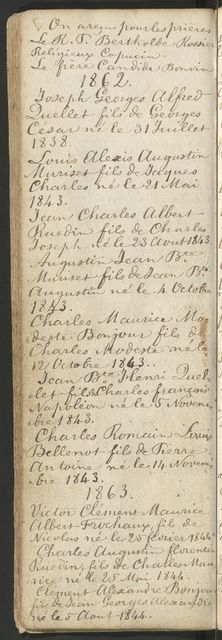 On a reçu pour les prières
Le R. P. Bertholbe Rossier
Religieux Capucin.
Le frère Candide Bonvin
1862.
Joseph Georges Alfred
Quellet fils de Georges
César né le 31 Juillet
1838.
Louis Alexis Augustin
Muriset fils de Jaques
Charles né le 21 Mai
1843.
Jean Charles Albert
Ruedin fils de Charles
Joseph né le 23 Aout 1843.
Augustin Jean Bte
Muriset fils de Jean Bte
Augustin né le 4 Octobre
1843.
Charles Maurice Mo
deste Bonjour fils de
Charles Modeste né le
12 Octobre 1843.
Jean Bte Henri Quel
let fils Charles françois
Napoléon né le 5 Novem
bre 1843.
Charles Romain Louis
Bellenot fils de Pierre
Antoine né le 14 Novem
bre 1843.
1863.
Victor Clément Maurice
Albert Frochaux, fils de
Nicolas né le 25 février 1844.
Charles Augustin florentin
Ruedin, fils de Charles Mau
rice né le 25 Mai 1844.
Clement Alexandre Bonjour
fils de Jean Georges Alexandre
né le 5 Aout 1844.